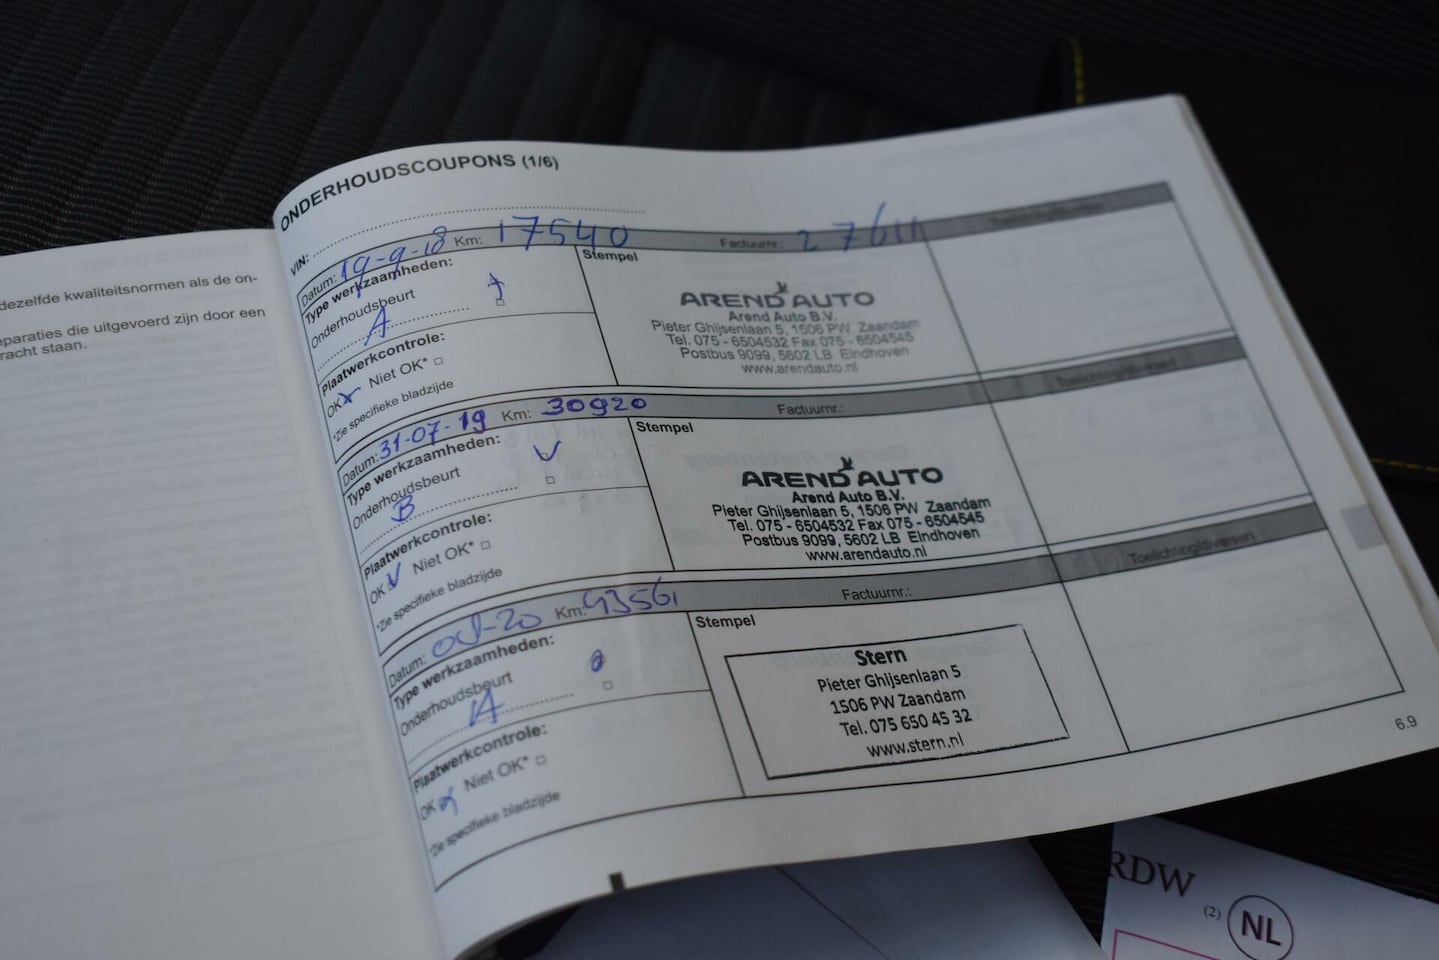 dezelfde kwaliteitsnormen als de on-
eparaties die uitgevoerd zijn door een
racht staan.
ONDERHOUDSCOUPONS (1/6)
VIN:
Datum: 19-9-18 Km: 17540 Factuurnr.:
Type werkzaamheden:
Onderhoudsbeurt
A
Plaatwerkcontrole:
OK Niet OK*
*Zie specifieke bladzijde
Stempel
AREND AUTO
Arend Auto B.V.
Pieter Ghijsenlaan 5, 1506 PW Zaandam
Tel. 075 - 6504532 Fax 075 - 6504545
Postbus 9099, 5602 LB Eindhoven
www.arendauto.nl
Datum: 31-07-19 Km: 30920 Factuurnr.: Toelichting/diversen
Type werkzaamheden:
Onderhoudsbeurt
B
Plaatwerkcontrole:
OK V Niet OK*
*Zie specifieke bladzijde
Stempel
AREND AUTO
Arend Auto B.V.
Pieter Ghijsenlaan 5, 1506 PW Zaandam
Tel. 075 - 6504532 Fax 075 - 6504545
Postbus 9099, 5602 LB Eindhoven
www.arendauto.nl
Datum: Km: 43561 Factuurnr.: Toelichting/diversen
Type werkzaamheden:
Onderhoudsbeurt
A
Plaatwerkcontrole:
OK Niet OK*
*Zie specifieke bladzijde
Stempel
Stern
Pieter Ghijsenlaan 5
1506 PW Zaandam
Tel. 075 650 45 32
www.stern.nl
6.9
RDW
(2) NL